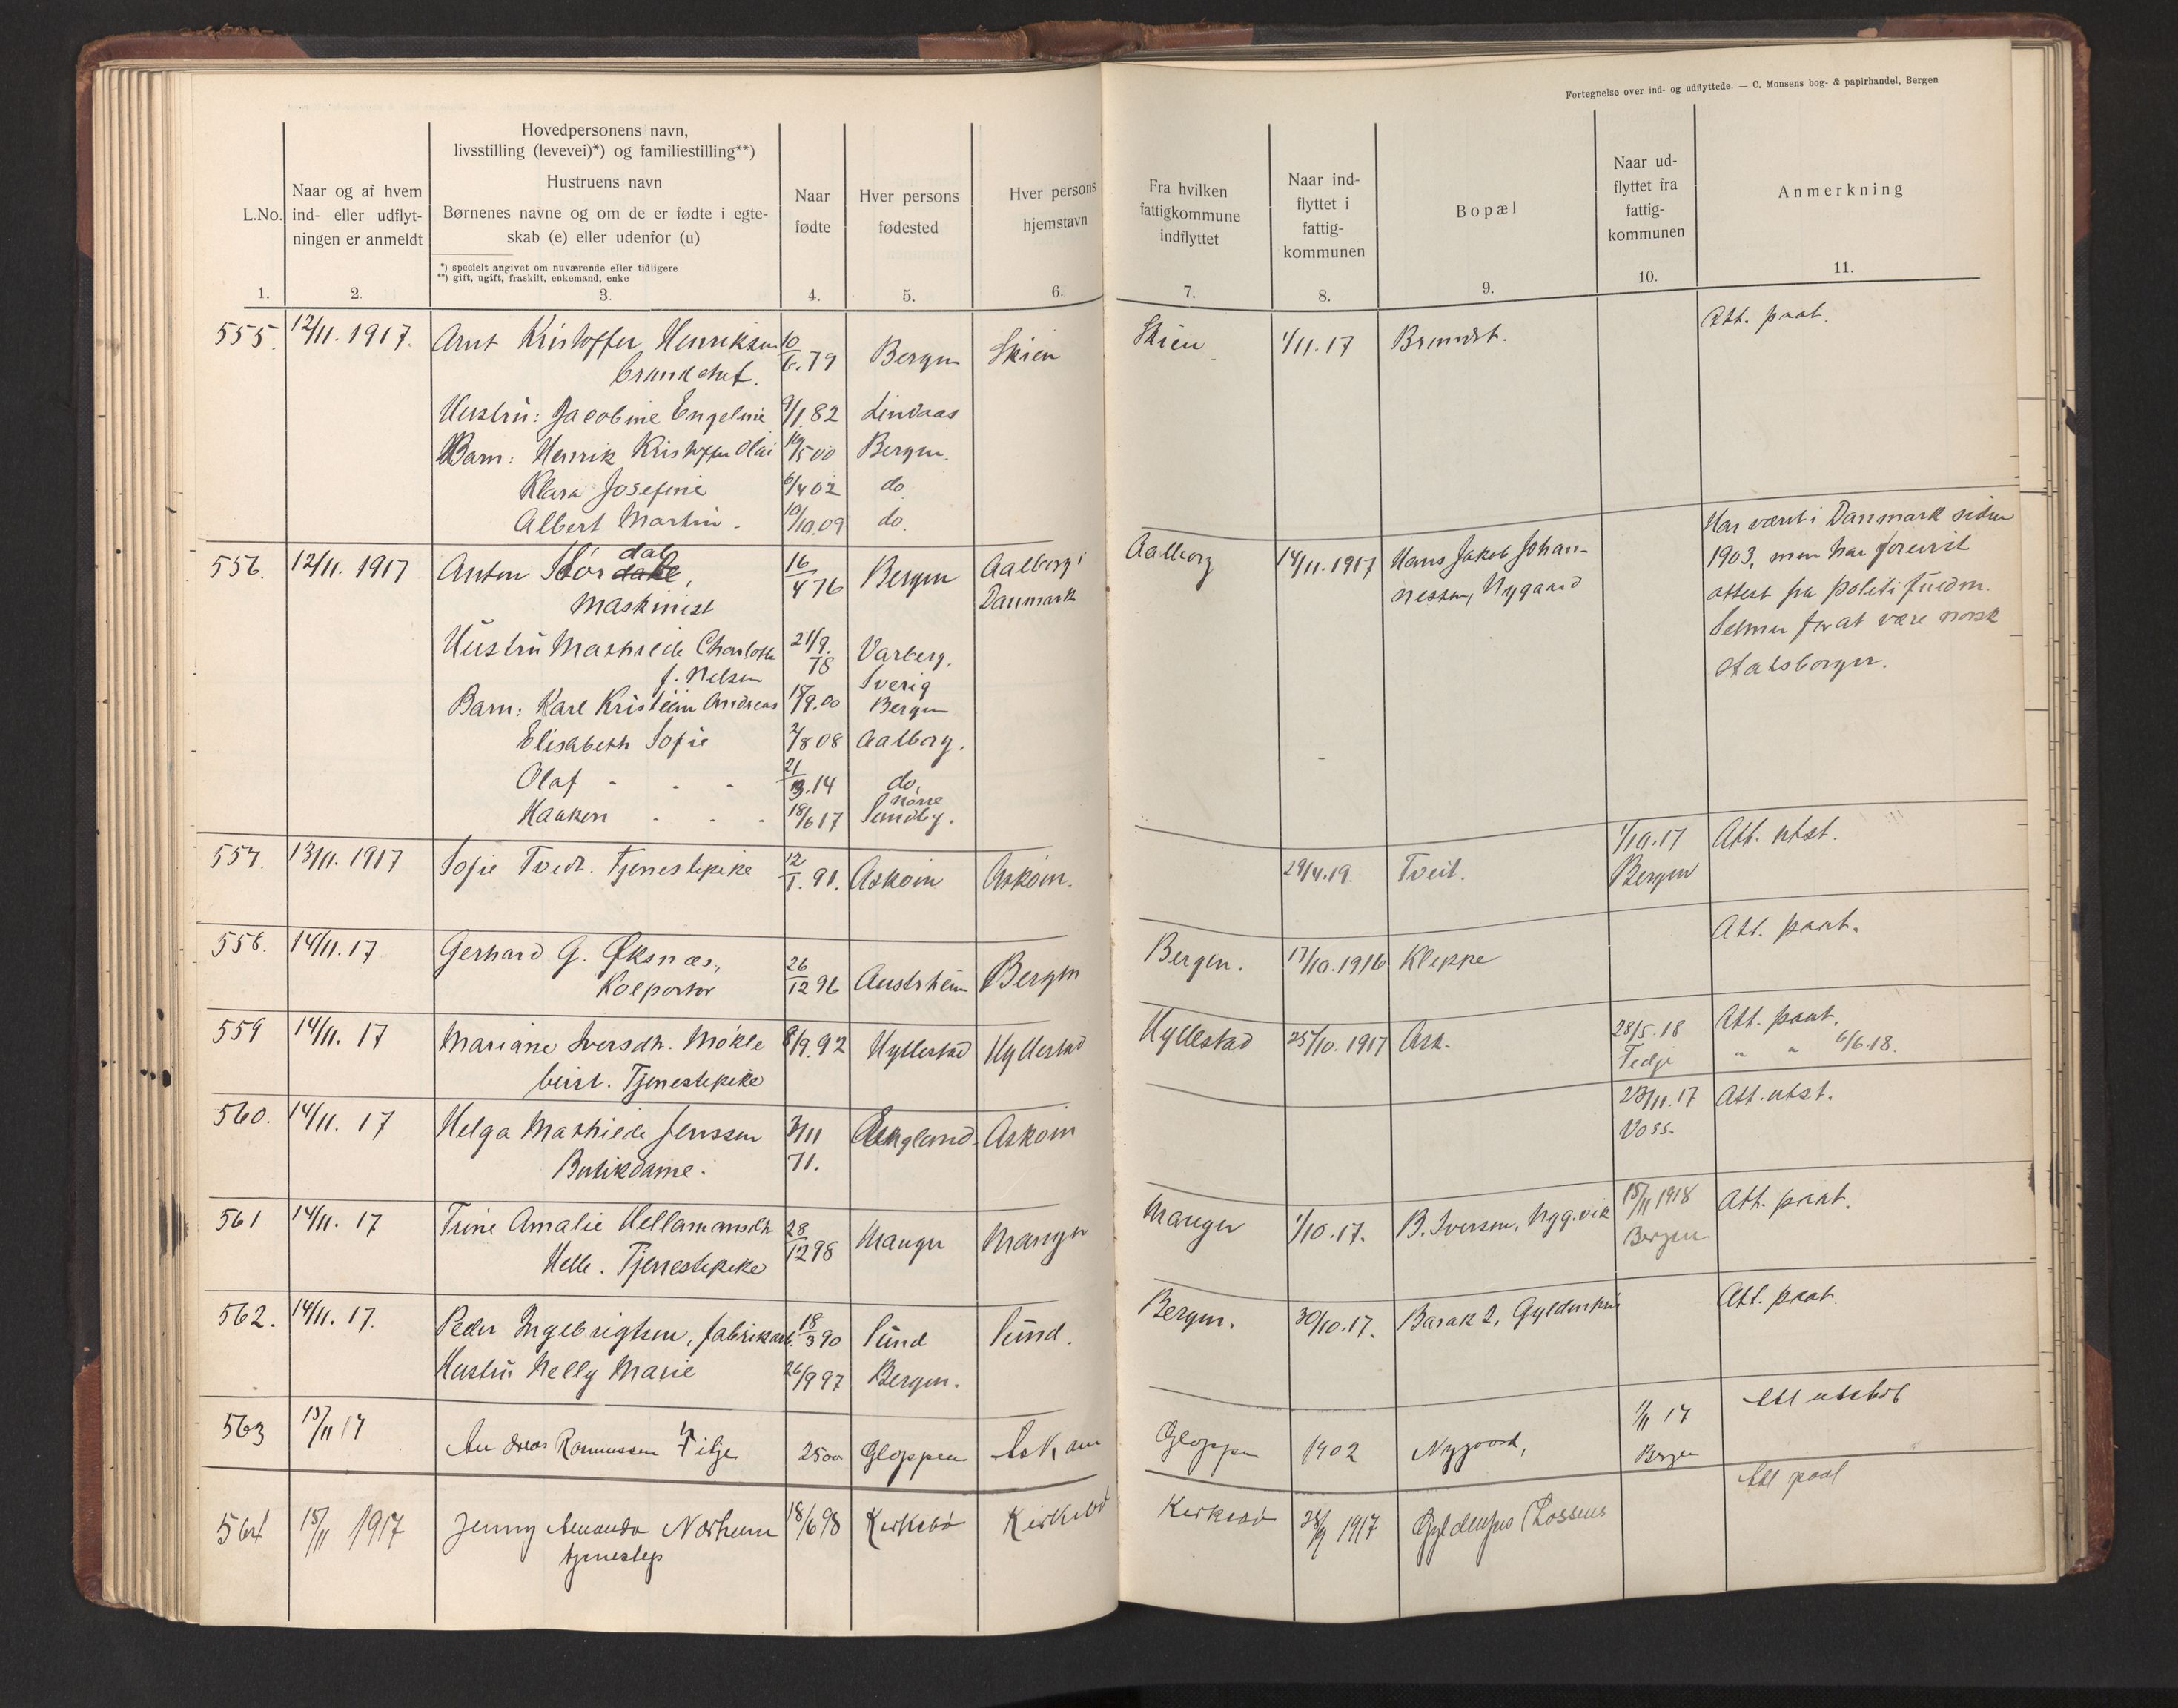 Fortegnelse over ind- og udflyttede. — C. Monsens bog- & papirhandel, Bergen
L.No.
1.
Naar og af hvem
ind- eller udflyt-
ningen er anmeldt
2.
Hovedpersonens navn,
livsstilling (levevei)*) og familiestilling**)
Hustruens navn
Børnenes navne og om de er fødte i egte-
skab (e) eller udenfor (u)
*) specielt angivet om nuværende eller tidligere
**) gift, ugift, fraskilt, enkemand, enke
3.
Naar
fødte
4.
Hver persons
fødested
5.
Hver persons
hjemstavn
6.
Fra hvilken
fattigkommune
indflyttet
7.
Naar ind-
flyttet i
fattig-
kommunen
8.
Bopæl
9.
Naar ud-
flyttet fra
fattig-
kommunen
10.
Anmerkning
11.
555. 12/11. 1917. Arnt Kristoffer Henriksen 10/6. 79 Bergen Skien Skien 1/11. 17 Att. paat.
brandchef.
Hustru: Jacobine Engeline 9/1 82 Lindaas
Barn: Henrik Kristoffer Olai 19/5 00 Bergen.
Klara Josefine 6/4 02 do
Albert Martin - 19/10. 09 do.
556. 12/11. 1917 Anton Stordal, 16/4 76 Bergen Aalborg i Aalborg 14/11. 1917 Hans Jakob Johan- Har vært i Danmark siden
Maskinist Danmark nessen, Nygaard 1903, men har forevist
attest fra politifuldm.
Selmer for at være norsk
statsborger.
Hustru Mathilde Charlotte 21/9. 78 Varberg,
f. Nelsen Sverig
Barn: Karl Kristian Andreas 15/9. 00 Bergen
Elisabeth Sofie 2/8 08 Aalborg.
Olaf - - - 21/3. 14 do,
Haakon - - - 18/6 17 Nørre
Sundby.
557. 13/11. 1917 Sofie Tvedt. Tjenestepike 12/1. 91. Askøin Askøin. 29/4. 19. Tveit. 1/10. 17 Att. utst.
Bergen
558. 14/11. 17 Gerhard G. Øksnæs, 26/12 96 Austrheim Bergen Bergen. 17/10. 1916 Kleppe Att. paat.
Kolportør
559 14/11. 17 Mariane Iversdtr. Møkle 8/9. 92 Hyllestad Hyllestad Hyllestad 25/10. 1917 Ask. 28/5. 18 Att. paat.
beist. Tjenestepike Fedje " " 6/6. 18.
560. 14/11. 17 Helga Mathilde Jenssen 3/11 71. England Askøin 23/11. 17 Att. utst.
Butikdame. Voss.
561 14/11. 17 Trine Amalie Hellamansdtr 28/12 98 Manger Manger Manger 1/10. 17. B. Iversen, Nygvik 15/11 1918 Att. paat.
Helle. Tjenestepike Bergen
562. 14/11. 17. Peder Ingebrigtsen, fabrikarb. 18/3 90 Sund Sund. Bergen. 30/10. 17. Barak 2, Gyldenskri Att. paat.
Hustru Nelly Marie 26/9 97 Bergen.
563 15/11 17 Andreas Rasmussen 25 00 Gloppen Askøin Gloppen 1902 Nygaard, 1/11 17 Att utstedt
Bergen
564 15/11 1917 Jenny Amanda 18/6 98 Kirkebø Kirkebø Kirkebø 28/9 1917 Att paat
tjenestep